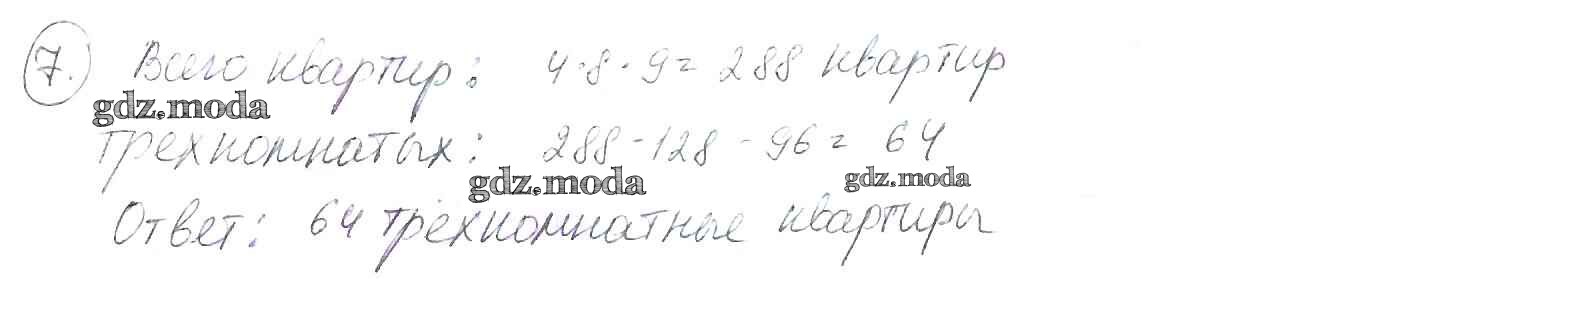 7. Всего квартир: 4·8·9= 288 квартир
gdz.moda
трехкомнатых: 288-128-96= 64
gdz.moda gdz.moda
Ответ: 64 трёхкомнатные квартиры